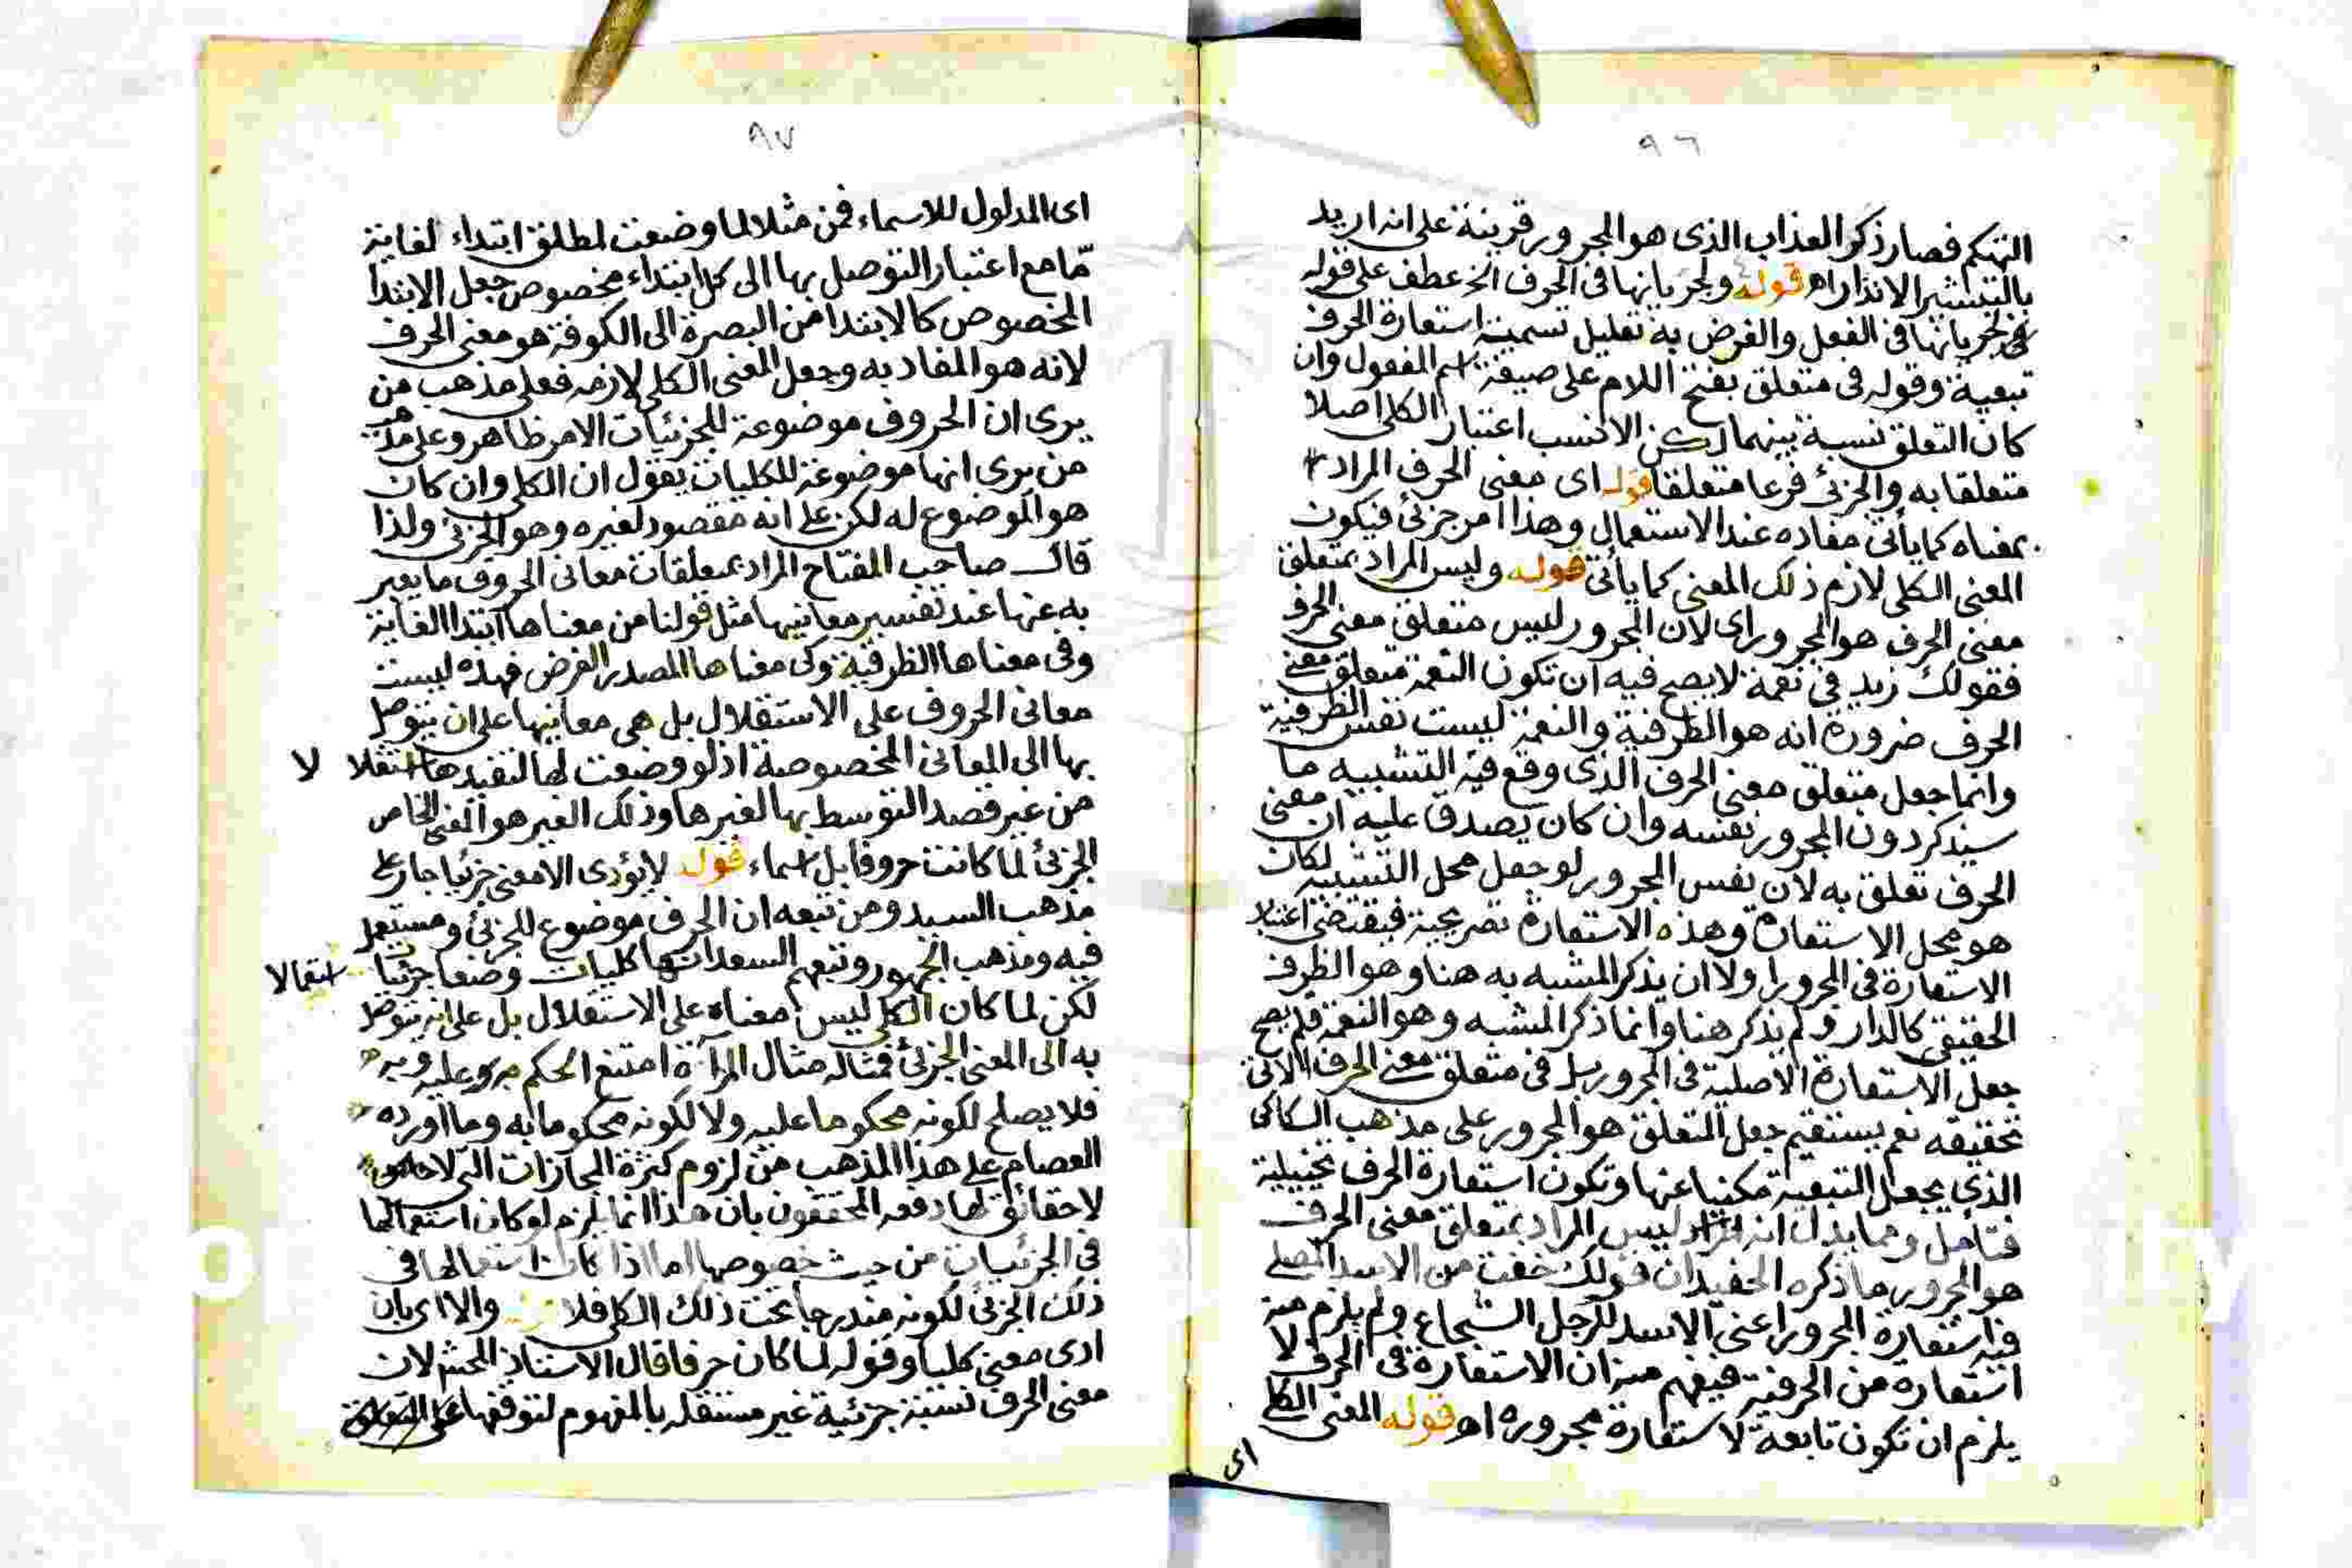 ٩٦
التهكم فصار ذكر العذاب الذى هو المجرور قرينة على انه اريد
بالتبشير الانذار اه قوله ولجريانها فى الحرف الخ عطف على قوله
لجريانها فى الفعل والغرض به تعليل تسمية استعارة الحرف
تبعية وقوله فى متعلق بفتح اللام على صيغة اسم المفعول وان
كان التعلق نسبة بينهما لكن الانسب اعتبار الكلى اصلا
متعلقا به والجزئ فرعا متعلقا قوله اى معنى الحرف المراد
بمعناه كما يأتى مفاده عند الاستعمال وهذا امر جزئى فيكون
المعنى الكلى لازم ذلك المعنى كما يأتى قوله وليس المراد بمتعلق
معنى الحرف هو المجرور اى لان المجرور ليس متعلق معنى الحرف
فقولك زيد فى نعمة لا يصح فيه ان تكون النعمة متعلق معنى
الحرف ضرورة انه هو الظرفية والنعمة ليست نفس الظرفية
وانما جعل متعلق معنى الحرف الذى وقع فيه التشبيه ما
سيذكر دون المجرور نفسه وان كان يصدق عليه ان معنى
الحرف تعلق به لان نفس المجرور لو جعل محل التشبيه لكان
هو محل الاستعارة وهذه الاستعارة تصريحية فيقتضى اعتبار
الاستعارة فى المجرور اولا ان يذكر المشبه به هنا وهو الظرف
الحقيقى كالدار ولم يذكر هنا وانما ذكر المشبه وهو النعمة فلم يصح
جعل الاستعارة الاصلية فى المجرور بل فى متعلق معنى الحرف الاتى
تحقيقه نعم يستقيم جعل التعلق هو المجرور على مذهب السكاكى
الذى يجعل التبعية مكنيا عنها وتكون استعارة الحرف تخييلية
فتأمل ومما يدل انه ليس المراد بمتعلق معنى الحرف
هو المجرور ما ذكره الحفيد ان قولك خفت من الاسد المصلى
فيه استعارة المجرور اعنى الاسد للرجل الشجاع ولم يلزم منه
استعارة من الحرفية فيفهم منه ان الاستعارة فى الحرف لا
يلزم ان تكون تابعة لاستعارة مجروره اه قوله المعنى الكلى
اى
٩٧
اى المدلول للاسماء فمن مثلا لما وضعت لمطلق ابتداء لغاية
مّا مع اعتبار التوصل بها الى كل ابتداء مخصوص جعل الابتدا
المخصوص كالابتدا من البصرة الى الكوفة هو معنى الحرف
لانه هو المفاد به وجعل المعنى الكلى لازمه فعلى مذهب من
يرى ان الحروف موضوعة للجزئيات الامر ظاهر وعلى مذهب
من يرى انها موضوعة للكليات يقول ان الكلى وان كان
هو الموضوع له لكن على انه مقصود لغيره وهو الجزئى ولذا
قال صاحب المفتاح المراد بمتعلقات معانى الحروف ما يعبر
به عنها عند تفسير معانيها مثل قولنا من معناها ابتدا الغاية
وفى معناها الظرفية وكى معناها المصدر الغرض فهذه ليست
معانى الحروف على الاستقلال بل هى معانيها على ان يتوصل
بها الى المعانى المخصوصة اذ لو وضعت لها لتفيدها استقلا لا
من غير قصد التوسط بها لغيرها وذلك الغير هو المعنى الخاص
الجزئ لما كانت حروفا بل اسماء قوله لا يؤدى الا معنى جزئيا جار على
مذهب السيد ومن تبعه ان الحرف موضوع للجزئى ومستعمل
فيه ومذهب الجمهور وتبعهم السعد انها كليات وضعا جزئيات استعمالا
لكن لما كان الكلى ليس معناه على الاستقلال بل على انه يتوصل
به الى المعنى الجزئ فمثاله مثال المرآة امتنع الحكم عليه وبه
فلا يصلح لكونه محكوما عليه ولا لكونه محكوما به وما اورده
العصام على هذا المذهب من لزوم كثرة المجازات التى
لا حقائق لها دفعه المحققون بان هذا انما يلزم لو كان استعمالها
فى الجزئيات من حيث خصوصها اما اذا كان استعمالها فى
ذلك الجزئ لكونه مندرجا تحت ذلك الكلى فلا قوله والا اى بان
ادى معنى كليا وقوله لما كان حرفا قال الاستاذ المحشى لان
معنى الحرف نسبة جزئية غير مستقلة بالمفهوم لتوقفها على